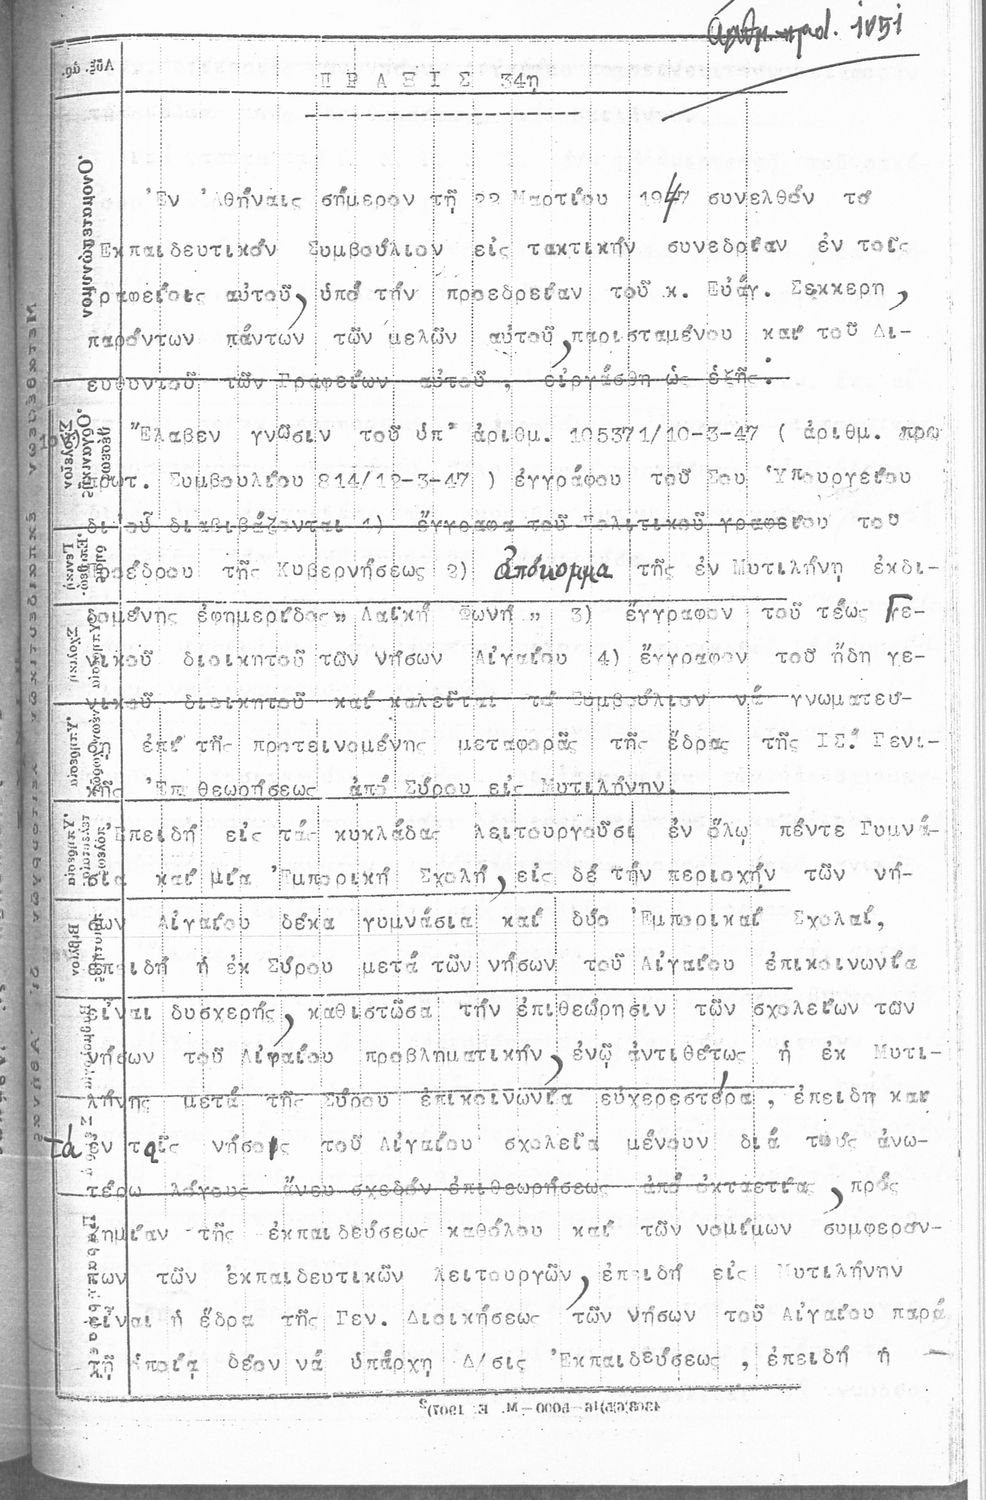 Ἀριθμ. πρωτ. 1051
ΠΡΑΞΙΣ 34η
Ἐν Ἀθήναις σήμερον τῇ 22 Μαρτίου 1947 συνελθόν τό
Ἐκπαιδευτικόν Συμβούλιον εἰς τακτικήν συνεδρίαν ἐν τοῖς
Γραφείοις αὐτοῦ, ὑπό τήν προεδρείαν τοῦ κ. Εὐάγ. Σεκκερη,
παρόντων πάντων τῶν μελῶν αὐτοῦ, παρισταμένου καί τοῦ Δι-
ευθυντοῦ τῶν Γραφείων αὐτοῦ, εἰργάσθη ὡς ἑξῆς.
Ἔλαβεν γνῶσιν τοῦ ὑπ' ἀριθμ. 105371/10-3-47 ( ἀριθμ. πρω
πρωτ. Συμβουλίου 814/12-3-47 ) ἐγγράφου τοῦ Σου Ὑπουργείου
δι' οὗ διαβιβάζονται 1) ἔγγραφα τοῦ Πολιτικοῦ γραφείου τοῦ
Προέδρου τῆς Κυβερνήσεως 2) ἀπόκομμα τῆς ἐν Μυτιλήνῃ ἐκδι-
δομένης ἐφημερίδος » Λαϊκή Φωνή » 3) ἔγγραφον τοῦ τέως Γε-
νικοῦ διοικητοῦ τῶν νήσων Αἰγαίου 4) ἔγγραφον τοῦ ἤδη γε-
νικοῦ διοικητοῦ καί καλεῖται τό Συμβούλιον νά γνωματεύ-
σῃ ἐπί τῆς προτεινομένης μεταφορᾶς τῆς ἕδρας τῆς ΙΣ! Γενι-
κῆς Ἐπιθεωρήσεως ἀπό Σύρου εἰς Μυτιλήνην.
Ἐπειδή εἰς τάς κυκλάδας λειτουργοῦσι ἐν ὅλῳ πέντε Γυμνά-
σια καί μία Ἐμπορική Σχολή, εἰς δέ τήν περιοχήν τῶν νή-
σων Αἰγαίου δέκα γυμνάσια καί δύο Ἐμπορικαί Σχολαί,
ἐπειδή ἡ ἐκ Σύρου μετά τῶν νήσων τοῦ Αἰγαίου ἐπικοινωνία
εἶναι δυσχερής, καθιστῶσα τήν ἐπιθεώρησιν τῶν σχολείων τῶν
νήσων τοῦ Αἰγαίου προβληματικήν, ἐνῷ ἀντιθέτως ἡ ἐκ Μυτι-
λήνης μετά τῆς Σύρου ἐπικοινωνία εὐχερεστέρα, ἐπειδη καί
τά ἐν ταῖς νήσοις τοῦ Αἰγαίου σχολεῖα μένουν διά τούς ἀνω-
τέρω λόγους ἄνευ σχεδόν ἐπιθεωρήσεως ἀπό ὀκταετίας, πρός
ζημίαν τῆς ἐκπαιδεύσεως καθόλου καί τῶν νομίμων συμφερόν-
των τῶν ἐκπαιδευτικῶν λειτουργῶν, ἐπειδή εἰς Μυτιλήνην
εἶναι ἡ ἕδρα τῆς Γεν. Διοικήσεως τῶν νήσων τοῦ Αἰγαίου παρά
τῇ ὁποίᾳ δέον νά ὑπάρχῃ Δ/σις Ἐκπαιδεύσεως, ἐπειδή ἡ